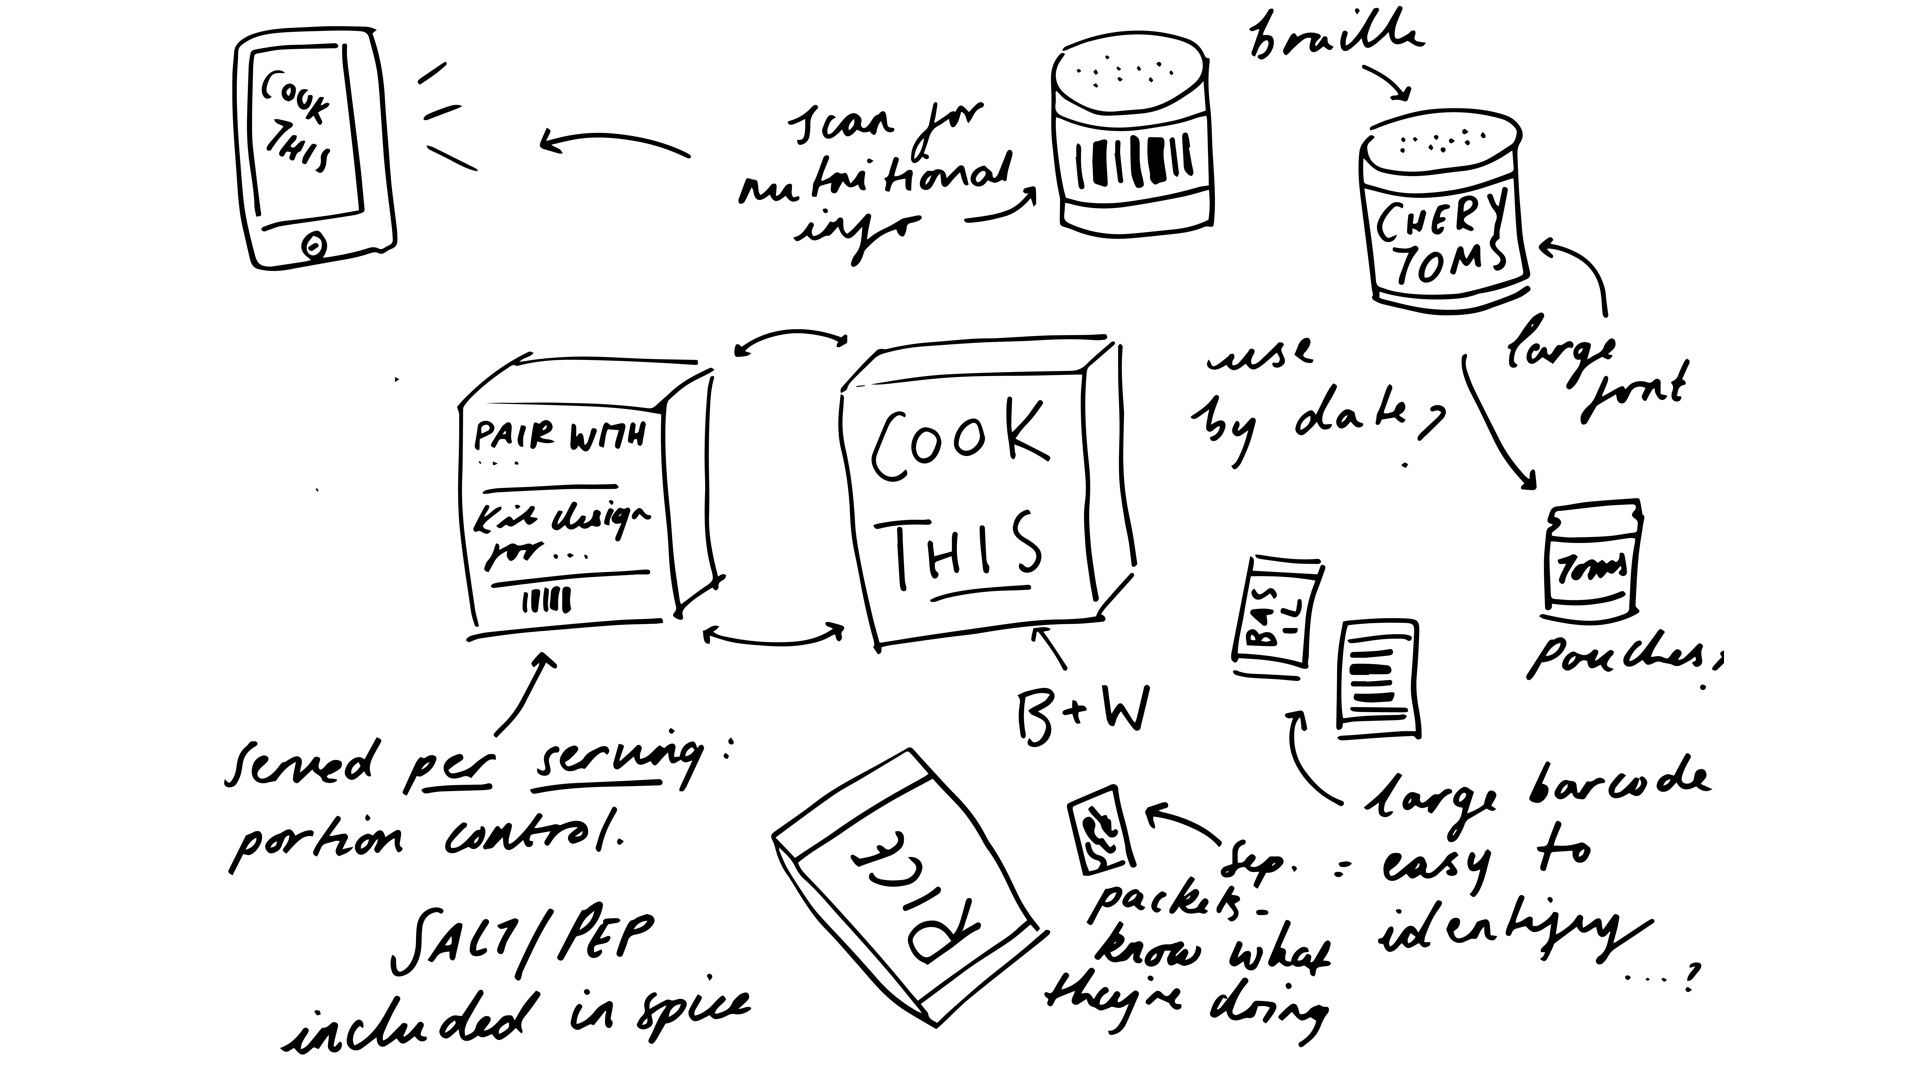 COOK
THIS
scan for
nutritional
info
braille
CHERY
TOMS
large
font
use
by date?
PAIR WITH
....
Kit design
for...
COOK
THIS
B+W
BAS
IL
TOMS
pouches?
served per serving:
portion control.
SALT/PEP
included in spice
RICE
sep.
packets -
know what
they're doing
large barcode
= easy to
identify
....?